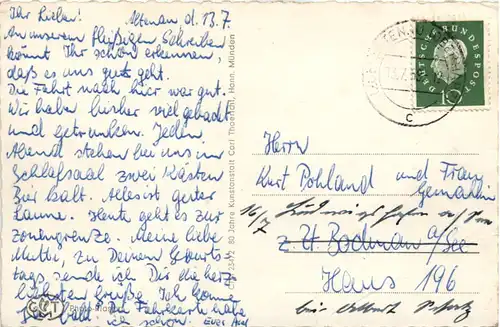 Ihr Lieben! Altenau d. 13.7.
An unserem fleißigen Schreiben
könnt Ihr schon erkennen,
daß es uns gut geht.
Die Fahrt nach hier war gut.
Wir haben bisher viel gebadet
und getrunken. Jeden
Abend stehen bei uns im
Schlafsaal zwei Kästen
Bier kalt. Alles ist guter
Laune. Heute geht es zur
Zonengrenze. Meine liebe
Mutti, zu Deinem Geburts-
tage sende ich Dir die herz-
lichsten Grüße. Ich komme
ja bald. Fahrkarte habe
ich schon. Euer Axel
80 Jahre Kunstanstalt Carl Thoericht, Hann. Münden
DEUTSCHE BUNDESPOST
10
c
Herrn
Kurt Pohland und Frau
Gemahlin
16/7
z. Zt. Bodman a/See
Haus 196
bei Albert